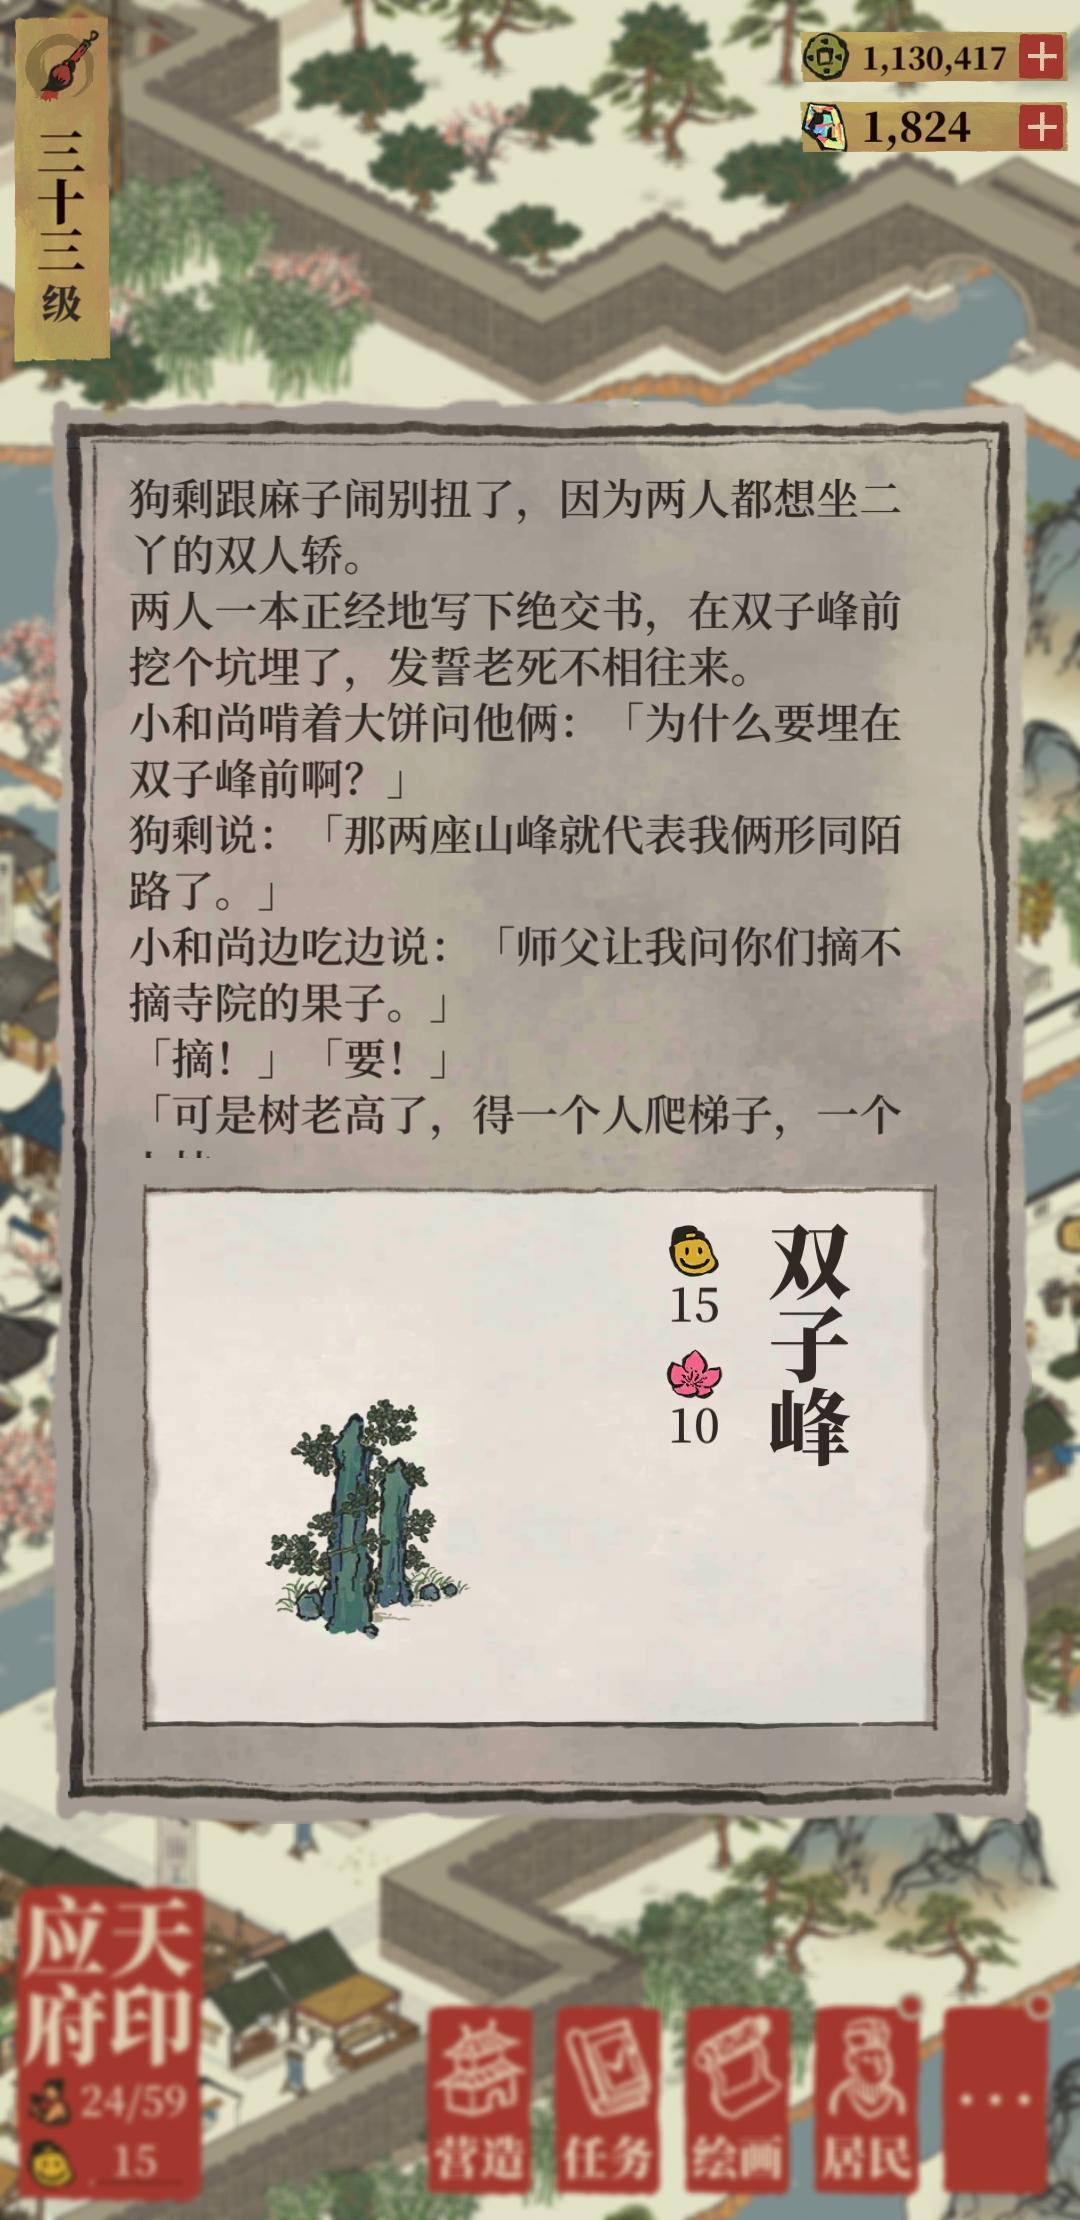 三十三级
1,130,417
1,824
狗剩跟麻子闹别扭了，因为两人都想坐二
丫的双人轿。
两人一本正经地写下绝交书，在双子峰前
挖个坑埋了，发誓老死不相往来。
小和尚啃着大饼问他俩：「为什么要埋在
双子峰前啊？」
狗剩说：「那两座山峰就代表我俩形同陌
路了。」
小和尚边吃边说：「师父让我问你们摘不
摘寺院的果子。」
「摘！」「要！」
「可是树老高了，得一个人爬梯子，一个
双子峰
15
10
应天
府印
24/59
15
营造
任务
绘画
居民